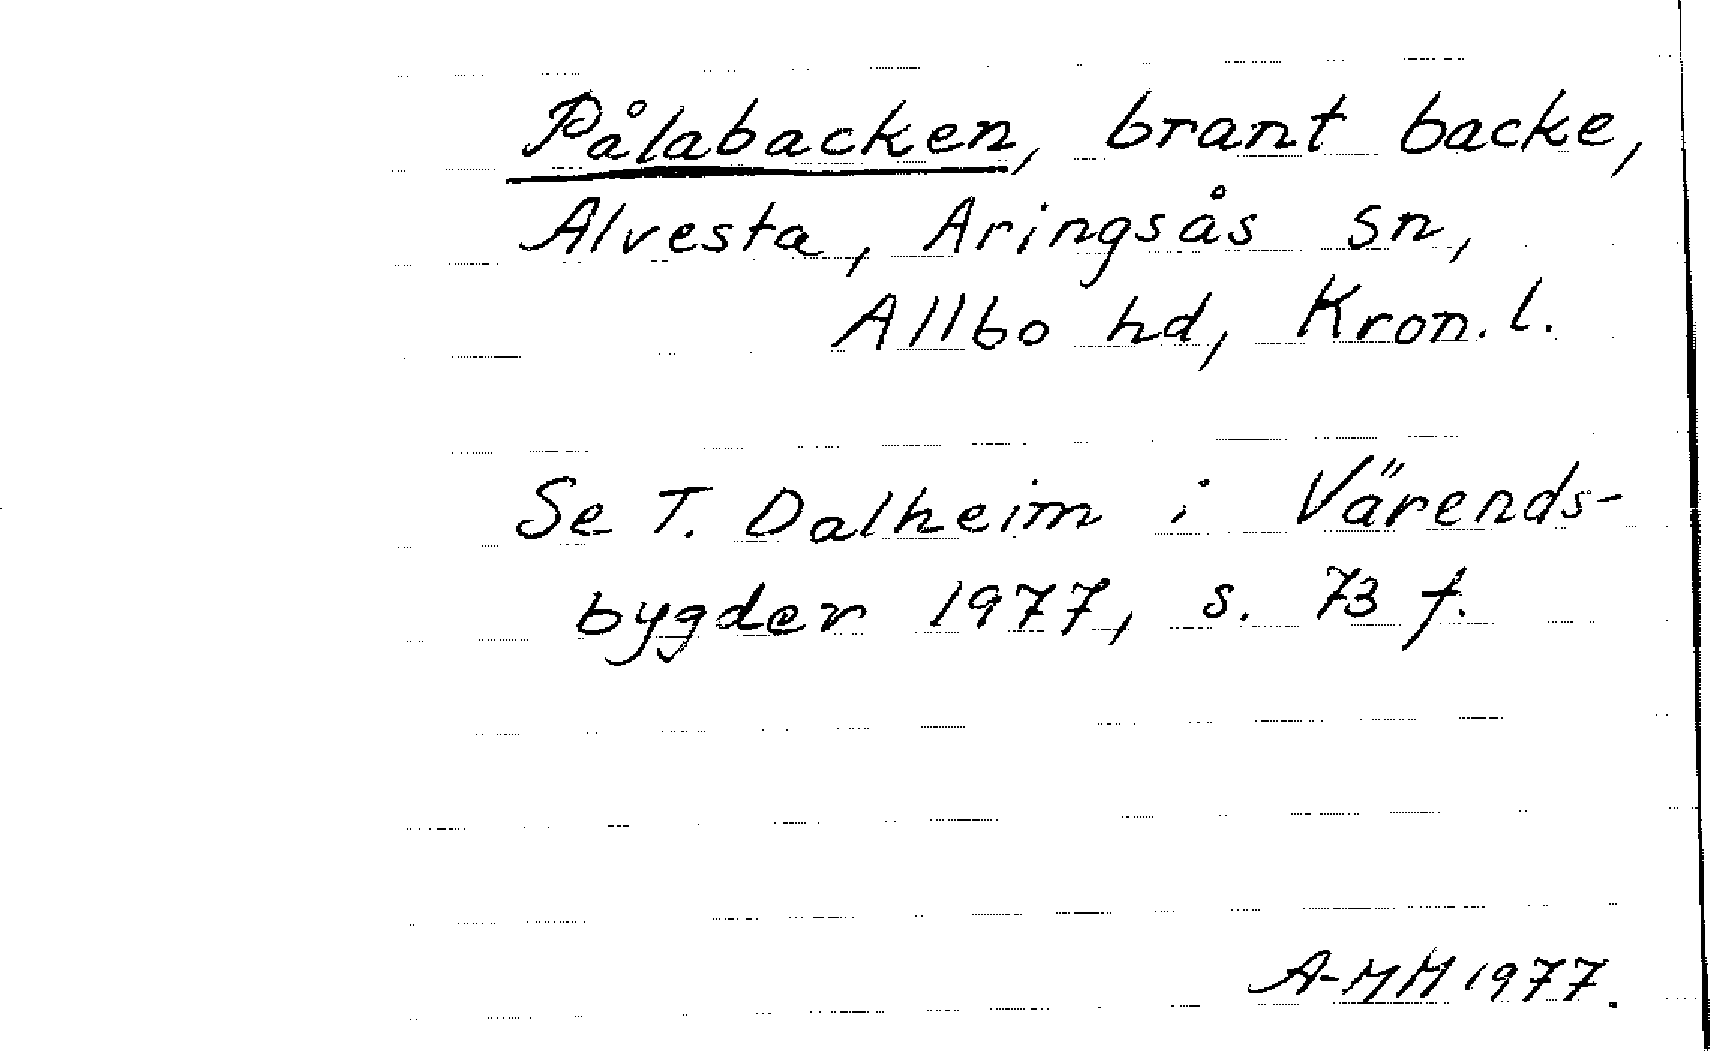 Pålabacken, brant backe,
Alvesta, Aringsås sn,
Allbo hd, Kron. l.
Se T. Dalheim i Värends-
bygder 1977, s. 73 f.
A-MM 1977.